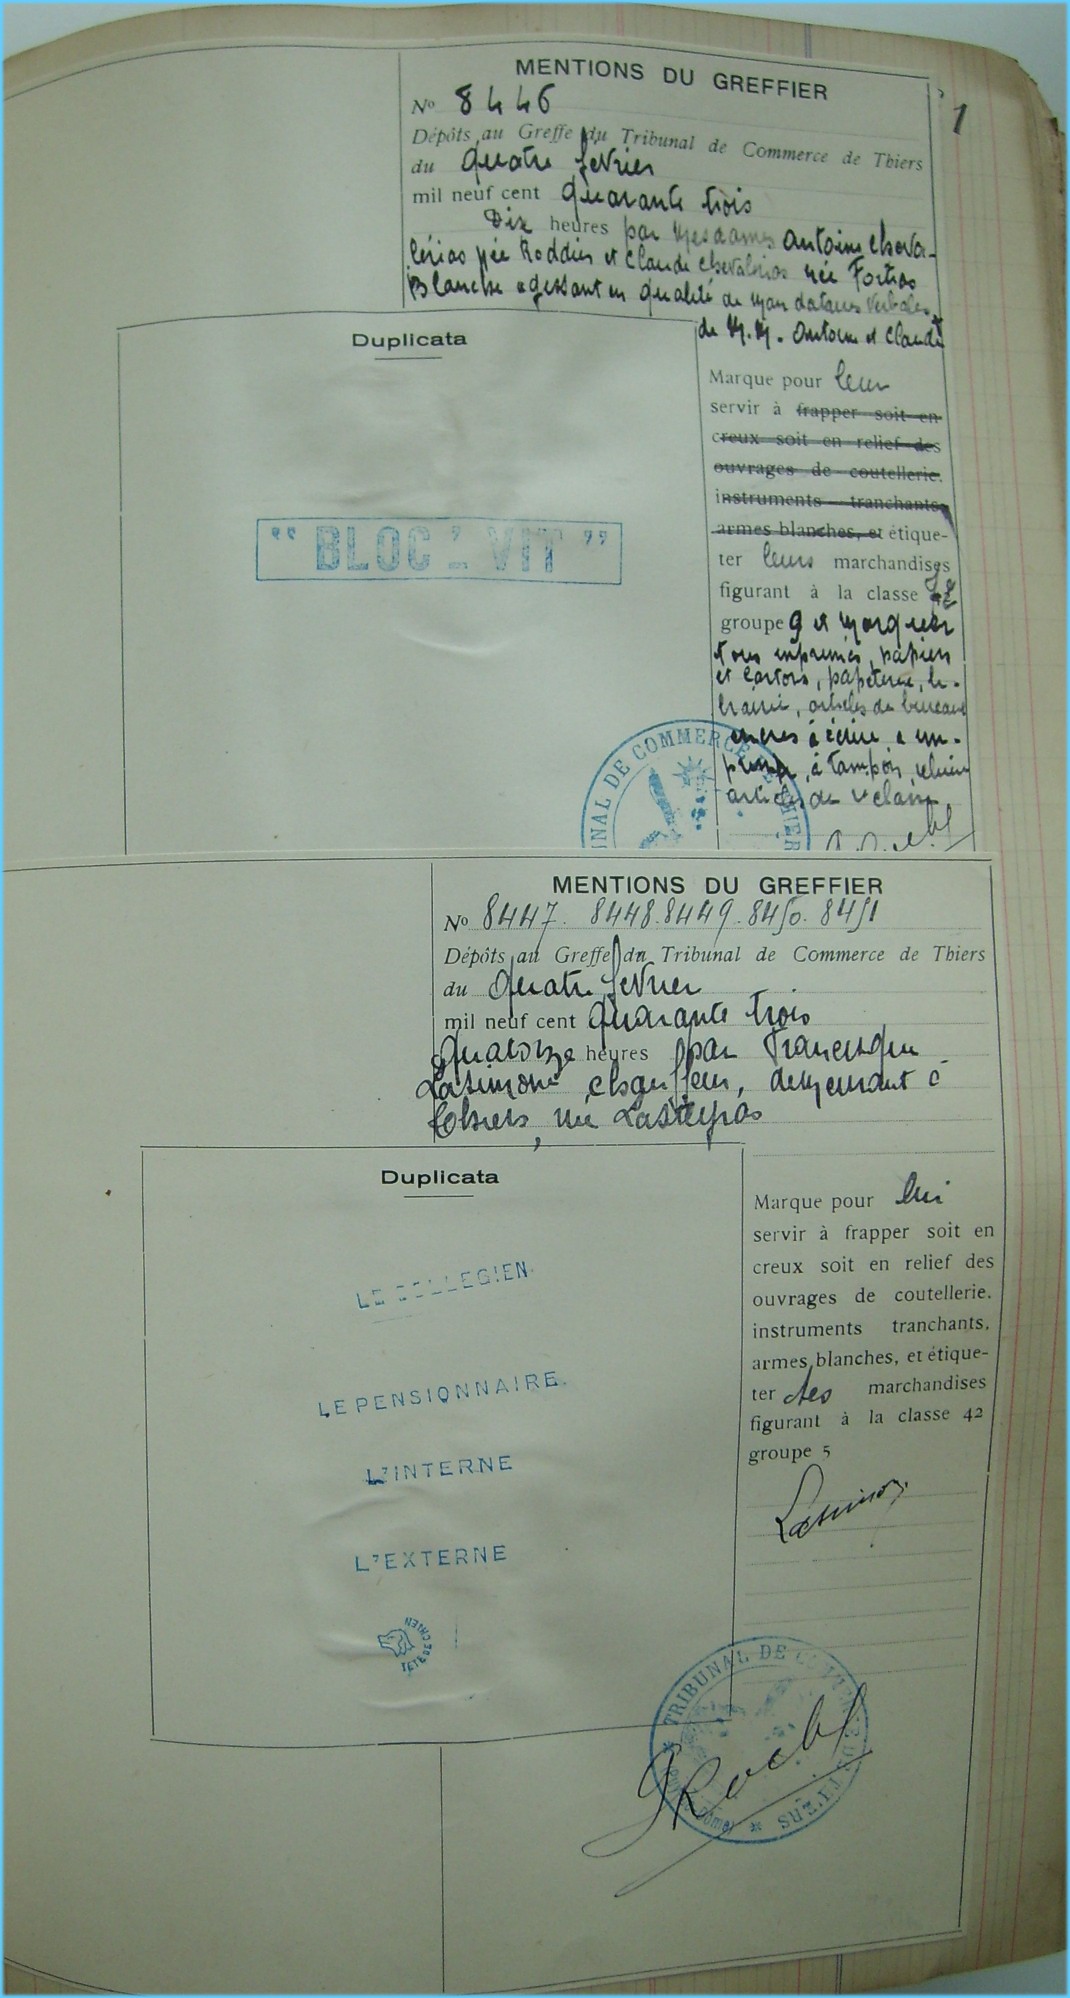 MENTIONS DU GREFFIER
1
No 8446
Dépôts au Greffe du Tribunal de Commerce de Thiers
du quatre fevrier
mil neuf cent quarante trois
Dix heures par Mesdames Antoine Cheva-
lérias née Roddier et Claude Chevalérias née Fortias
Blanche agissant en qualité de mandataires verbales
de M.M. Antoine et Claude
Duplicata
" BLOC'VIT "
Marque pour leur
servir à frapper soit en
creux soit en relief des
ouvrages de coutellerie.
instruments tranchants,
armes blanches, et étique-
ter leurs marchandises
figurant à la classe
groupe 9 et marquer
tous imprimés, papiers
et cartons, papeterie, li-
brairie, articles de bureau
encres à écrire, à im-
primer, à tampon, reliure
articles de réclame
MENTIONS DU GREFFIER
No 8447. 8448. 8449. 8450. 8451
Dépôts au Greffe du Tribunal de Commerce de Thiers
du quatre fevrier
mil neuf cent quarante trois
quatorze heures par Francisque
chauffeur, demeurant à
Thiers, rue Lasteyras
Duplicata
LE COLLEGIEN
LE PENSIONNAIRE
L'INTERNE
L'EXTERNE
TETE DE CHIEN
Marque pour lui
servir à frapper soit en
creux soit en relief des
ouvrages de coutellerie.
instruments tranchants.
armes blanches, et étique-
ter des marchandises
figurant à la classe 42
groupe 5
TRIBUNAL DE COMMERCE DE THIERS